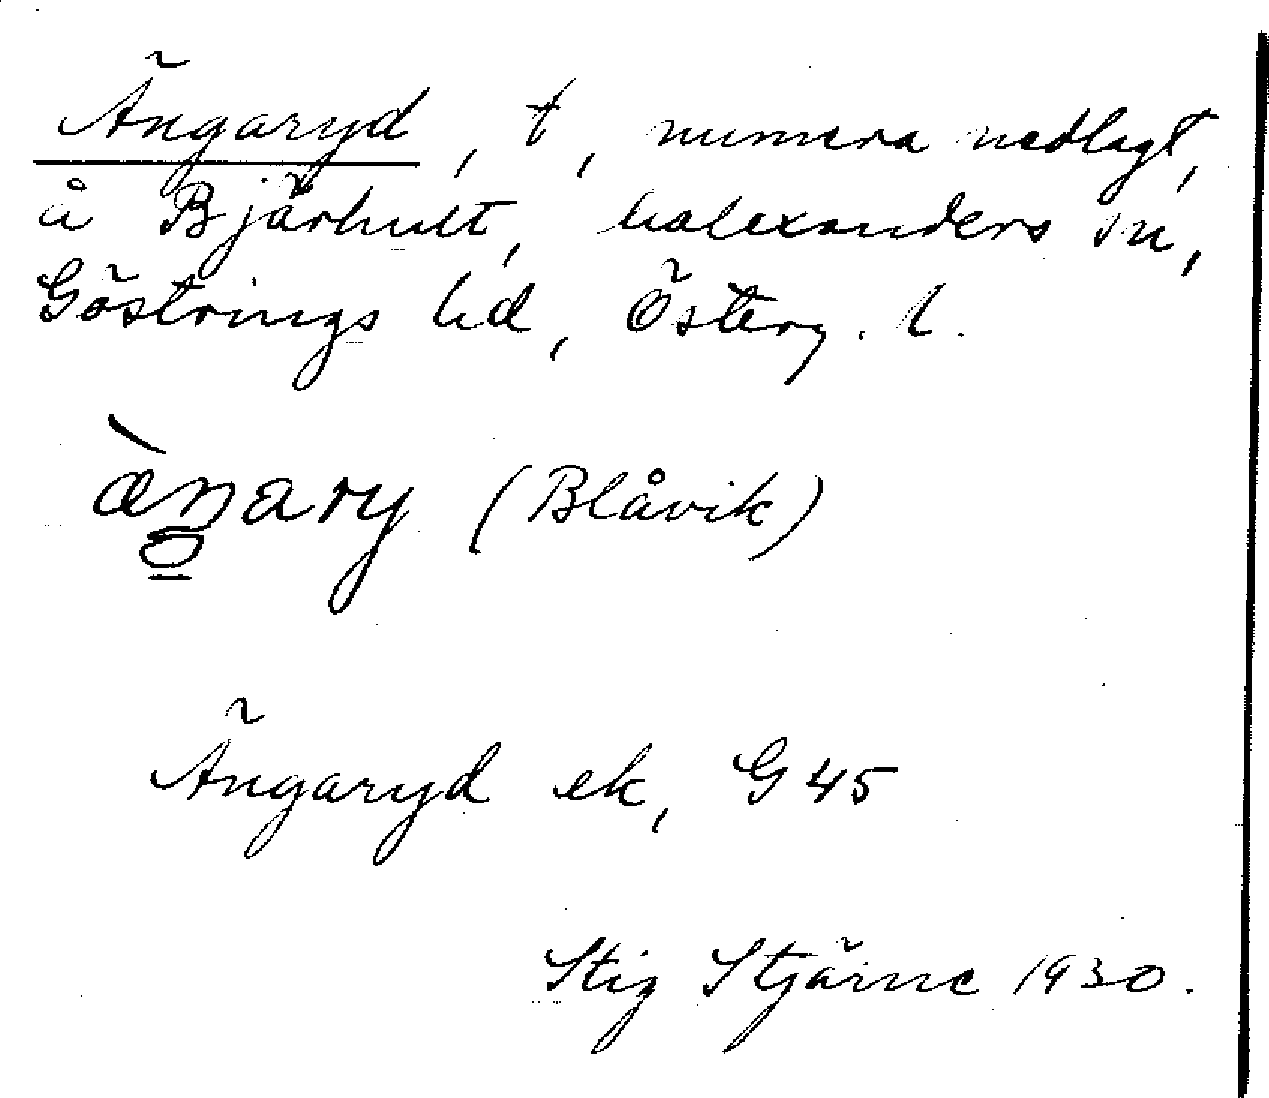 Ängaryd, t, numera nedlagt,
å Bjärhult, Malexanders sn,
Göstrings hd, Österg. l.
ànary (Blåvik)
Ängaryd ek, G 45
Stig Stjärne 1930.